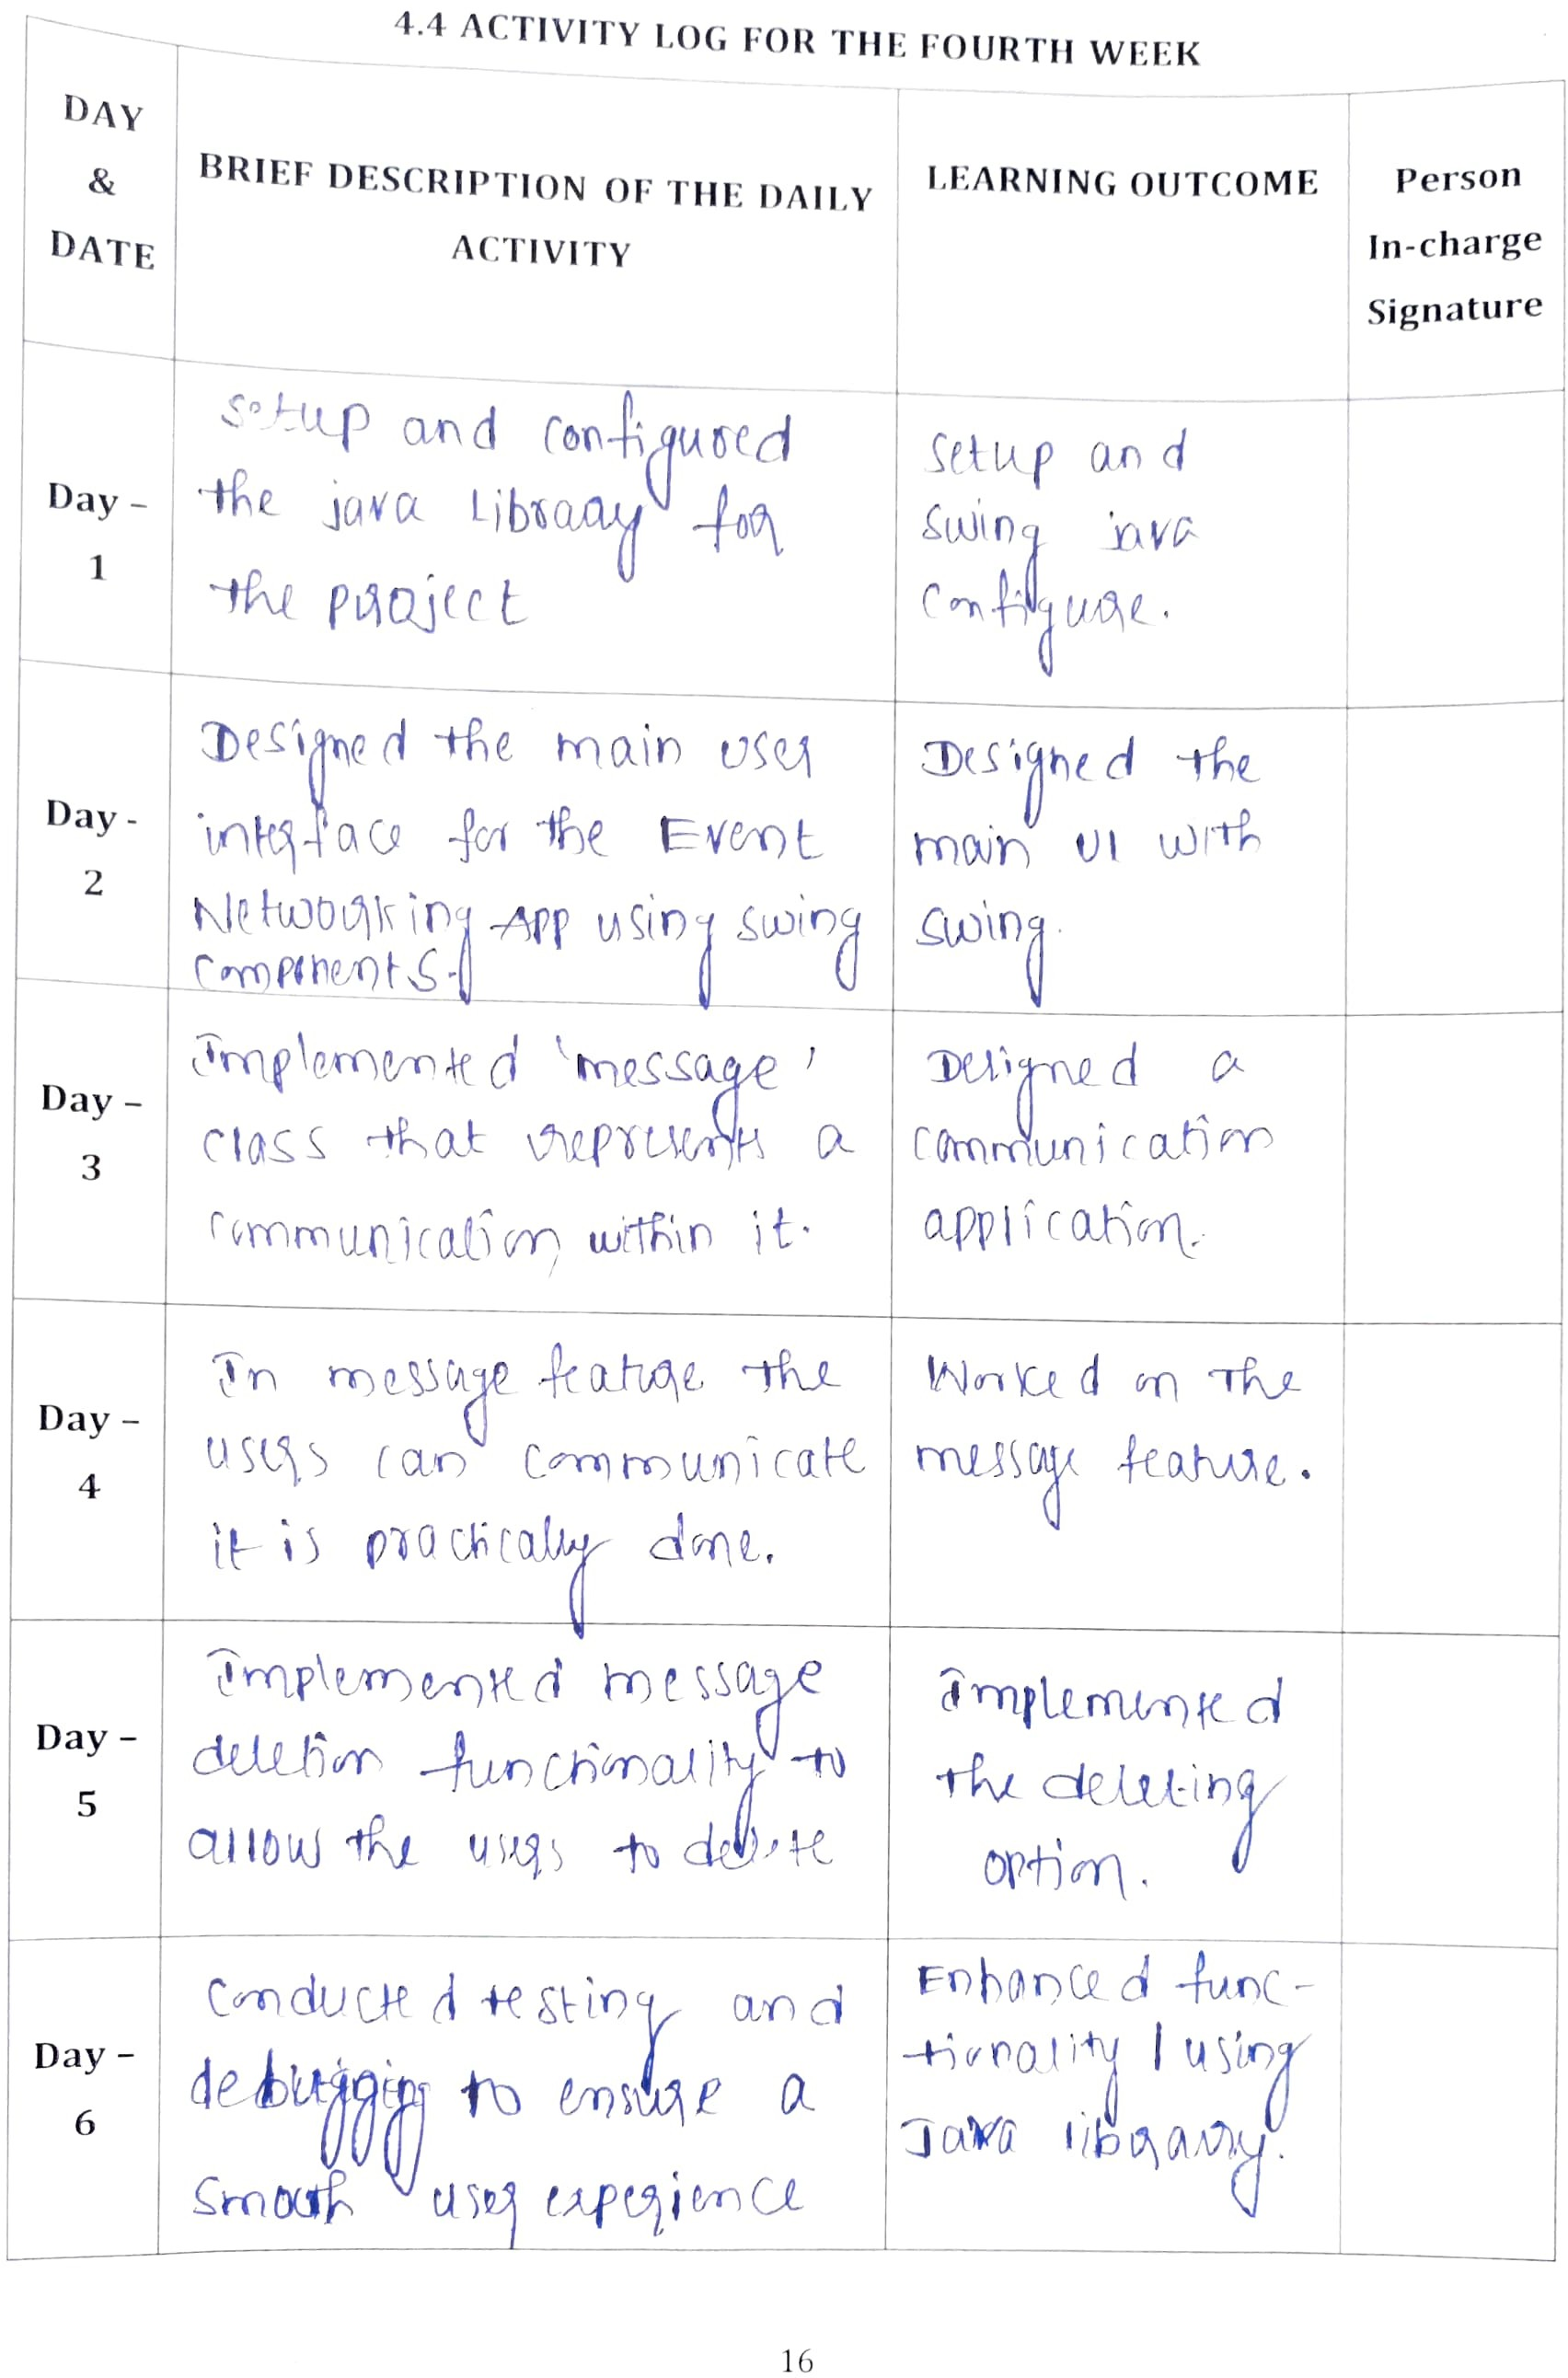 4.4 ACTIVITY LOG FOR THE FOURTH WEEK
DAY
&
DATE
BRIEF DESCRIPTION OF THE DAILY
ACTIVITY
LEARNING OUTCOME
Person
In-charge
Signature
Day –
1
Setup and configured
the java Library for
the project
Setup and
Swing java
Configure.
Day -
2
Designed the main user
interface for the Event
Networking App using swing
components.
Designed the
main UI with
swing.
Day –
3
Implemented 'message'
class that represents a
communication within it.
Designed a
communication
application.
Day –
4
In message feature the
users can communicate
it is practically done.
Worked on the
message feature.
Day –
5
Implemented message
deletion functionality to
allow the users to delete
Implemented
the deleting
option.
Day –
6
Conducted testing and
debugging to ensure a
smooth user experience
Enhanced func-
tionality | using
Java library.
16